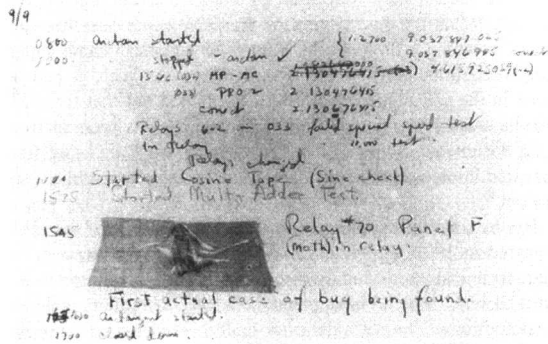 9/9
0800 antan started
1000 stopped - antan ✓ { 1.2700 9.037 847 025
9.037 846 995
13"c (032) MP-MC 4.615925059(-2)
(033) PRO 2 2.130476415
conect 2.130676415
Relays 6-2 in 033 failed special speed test
in relay 11.000 test.
Relays changed
1100 Started Cosine Tape (Sine check)
1525 Started Mult+Adder Test.
1545 Relay #70 Panel F
(Moth) in relay.
First actual case of bug being found.
antangent started.
1700 closed down.